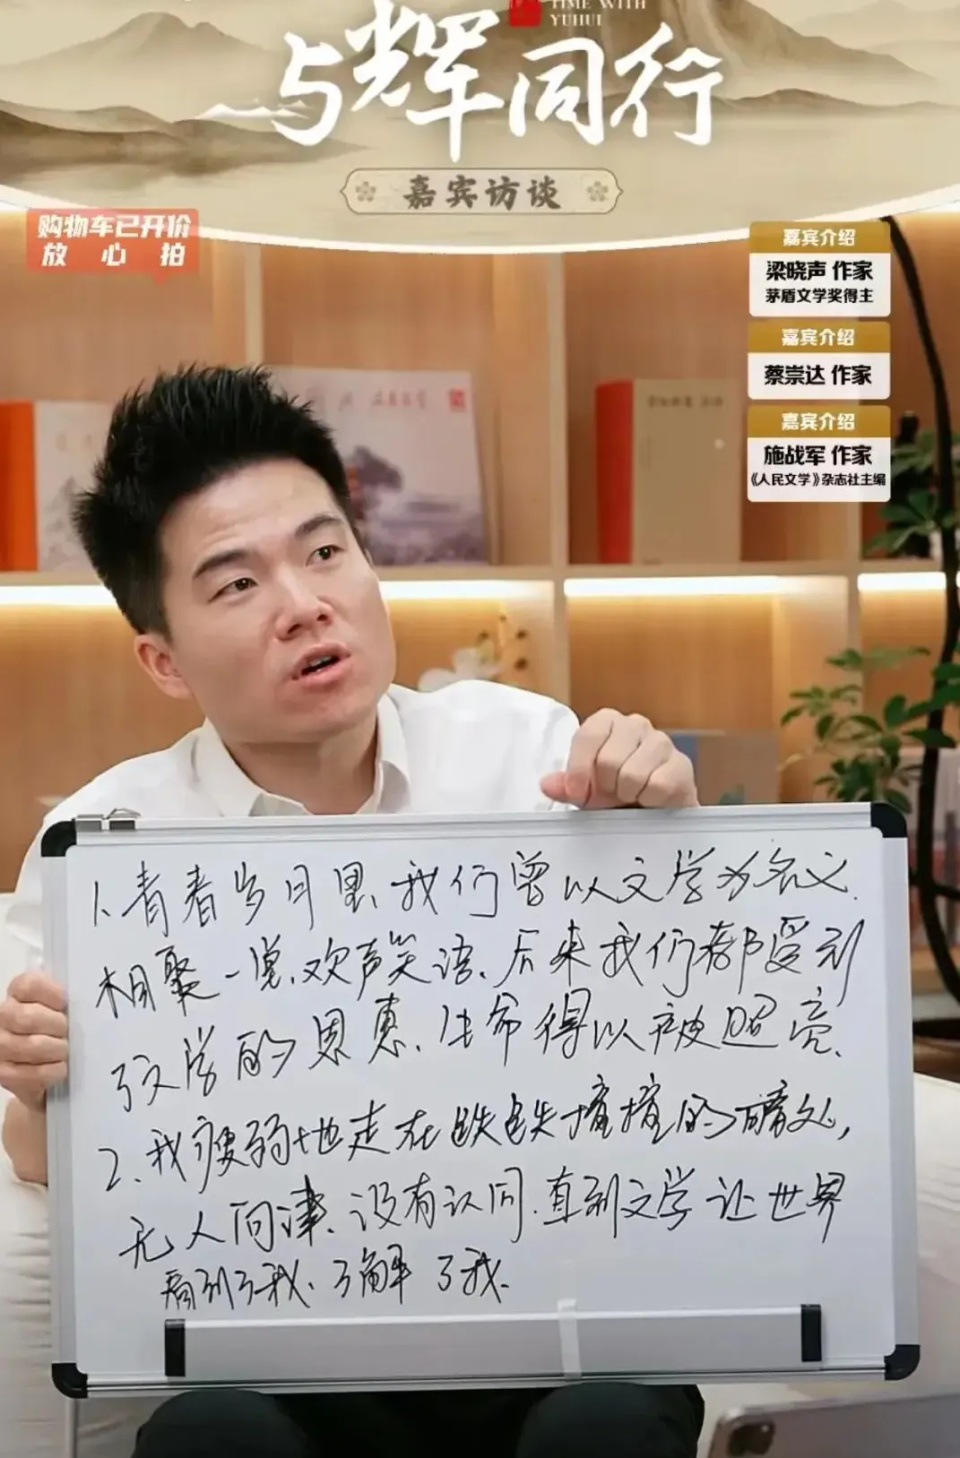 TIME WITH
YUHUI
与辉同行
嘉宾访谈
购物车已开价
放心拍
嘉宾介绍
梁晓声 作家
茅盾文学奖得主
嘉宾介绍
蔡崇达 作家
嘉宾介绍
施战军 作家
《人民文学》杂志社主编
1、青春岁月里、我们曾以文学为名义、
相聚一堂、欢声笑语、后来我们都受到
了文学的恩惠、生命得以被照亮、
2、我瘦弱地走在跌跌撞撞的暗处,
无人问津、没有认同、直到文学让世界
看到了我、了解了我、